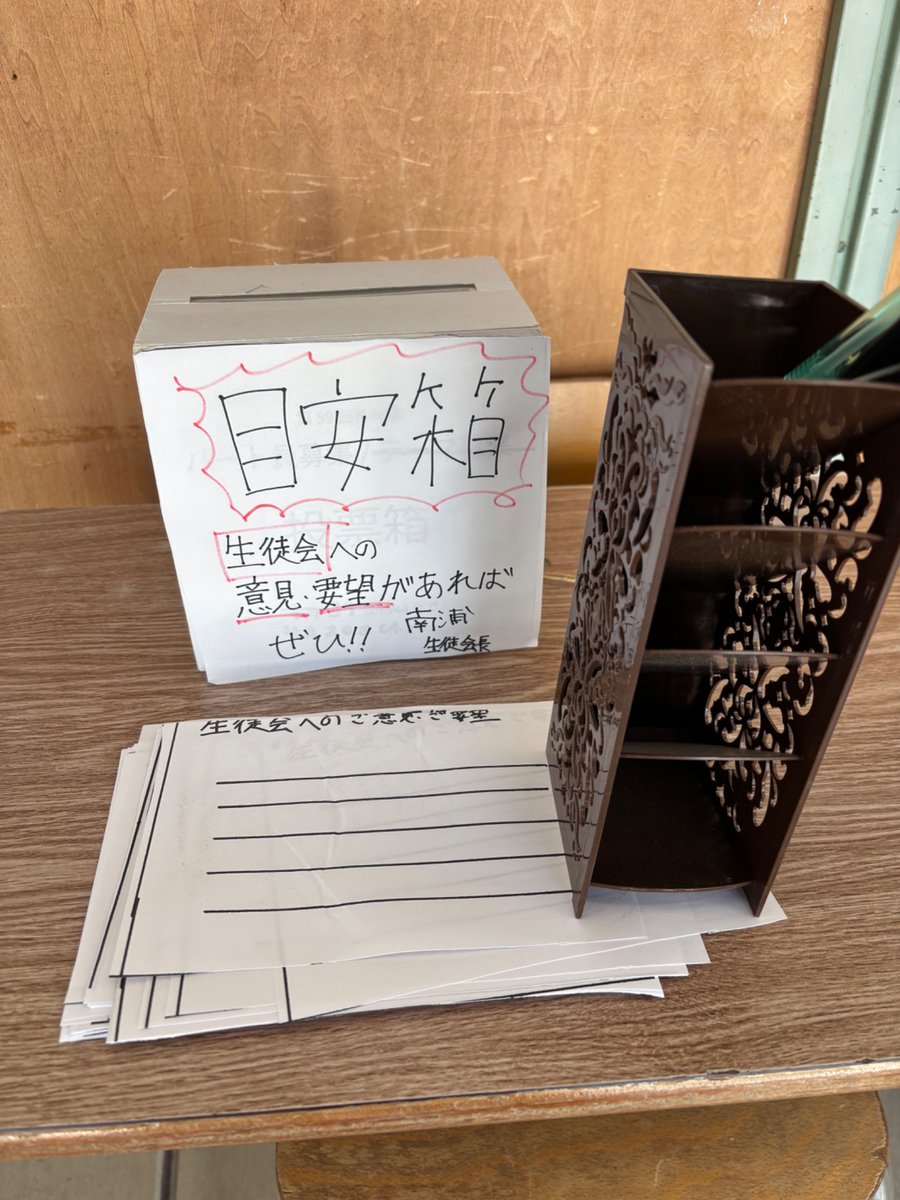 目安箱
投票箱
生徒会への
意見・要望があれば
ぜひ!!
南浦
生徒会長
生徒会へのご意見・ご要望